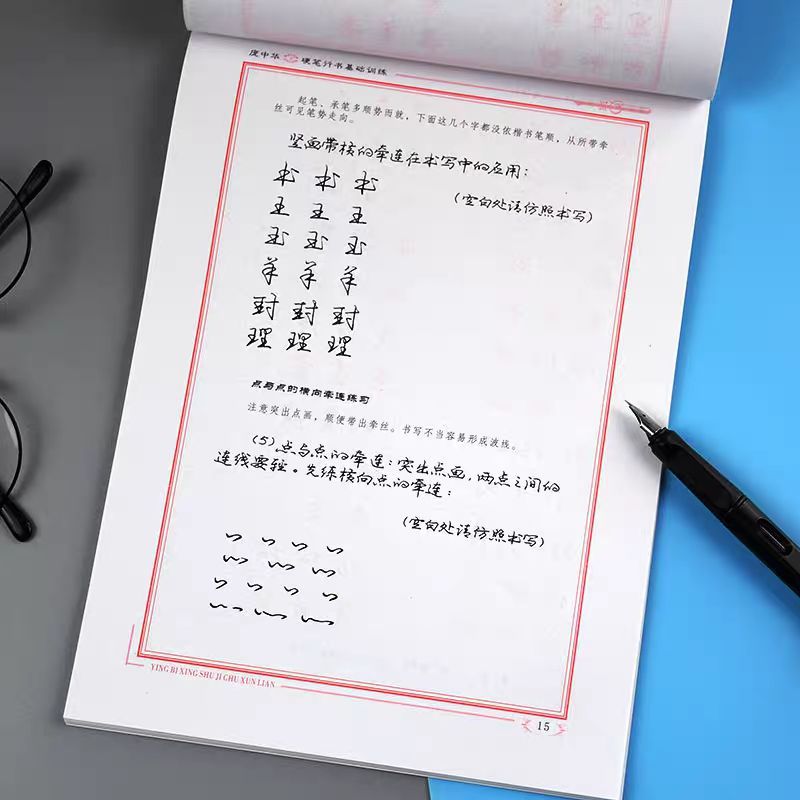 庞中华 硬笔行书基础训练
起笔、承笔多顺势而就，下面这几个字都没依楷书笔顺，从所带牵
丝可见笔势走向。
竖画带横的牵连在书写中的应用：
（空白处请仿照书写）
书 书 书
王 王 王
玉 玉 玉
羊 羊 羊
封 封 封
理 理 理
点与点的横向牵连练习
注意突出点画，顺便带出牵丝。书写不当容易形成波线。
（5）点与点的牵连：突出点画，两点之间的
连线要轻。先练横向点的牵连：
（空白处请仿照书写）
YING BI XING SHU JI CHU XUN LIAN
15